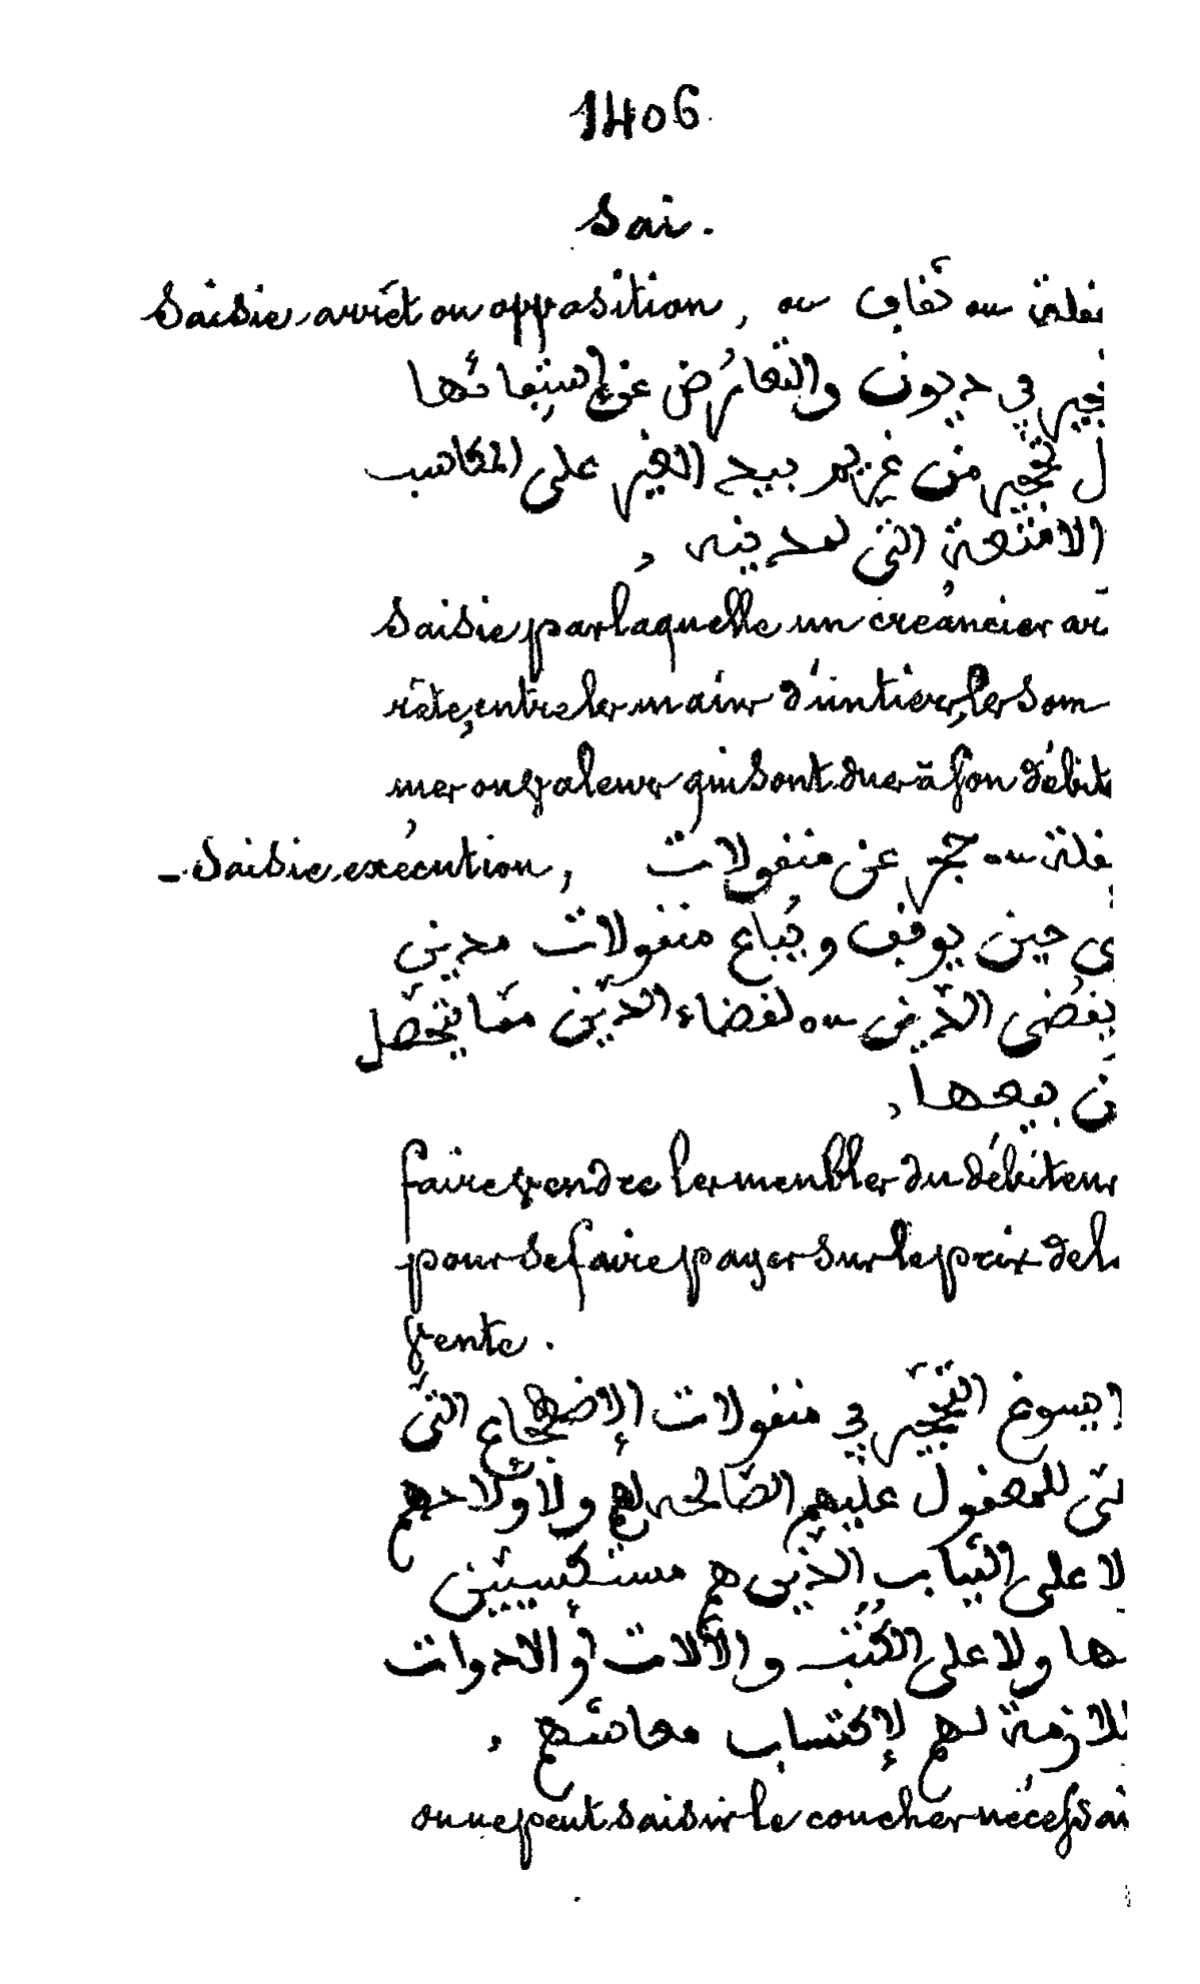 1406
Sai.
Saisie-arrêt ou opposition, ou ثفاف ou عفلة
في ديون والتعارض عن استيفائها
ل تحجير من غريم بيد الغير على المكاسب
الامتعة التي لمدينه,
saisie par laquelle un créancier ar
rête, entre les mains d'un tiers, les som
mes ou valeurs qui sont dues à son débite
- Saisie-exécution, عفلة ou حجر عن منفولات
ي حين يوفف ويباع منفولات مديني
يفضى الدين ou لفضاء الدين مما يتحصل
من بيعها,
faire vendre les meubles du débiteur
pour se faire payer sur le prix de l
vente.
ا يسوغ التحجير في منفولات الإضطجاع التي
للمعفول عليهم الصالحة لهم ولأولادهم
لا على الثياب الذين هم مستكسيين
ها ولا على الكتب والآلات أو الادوات
للازمة لهم لإكتساب معاشهم,
on ne peut saisir le coucher nécessai